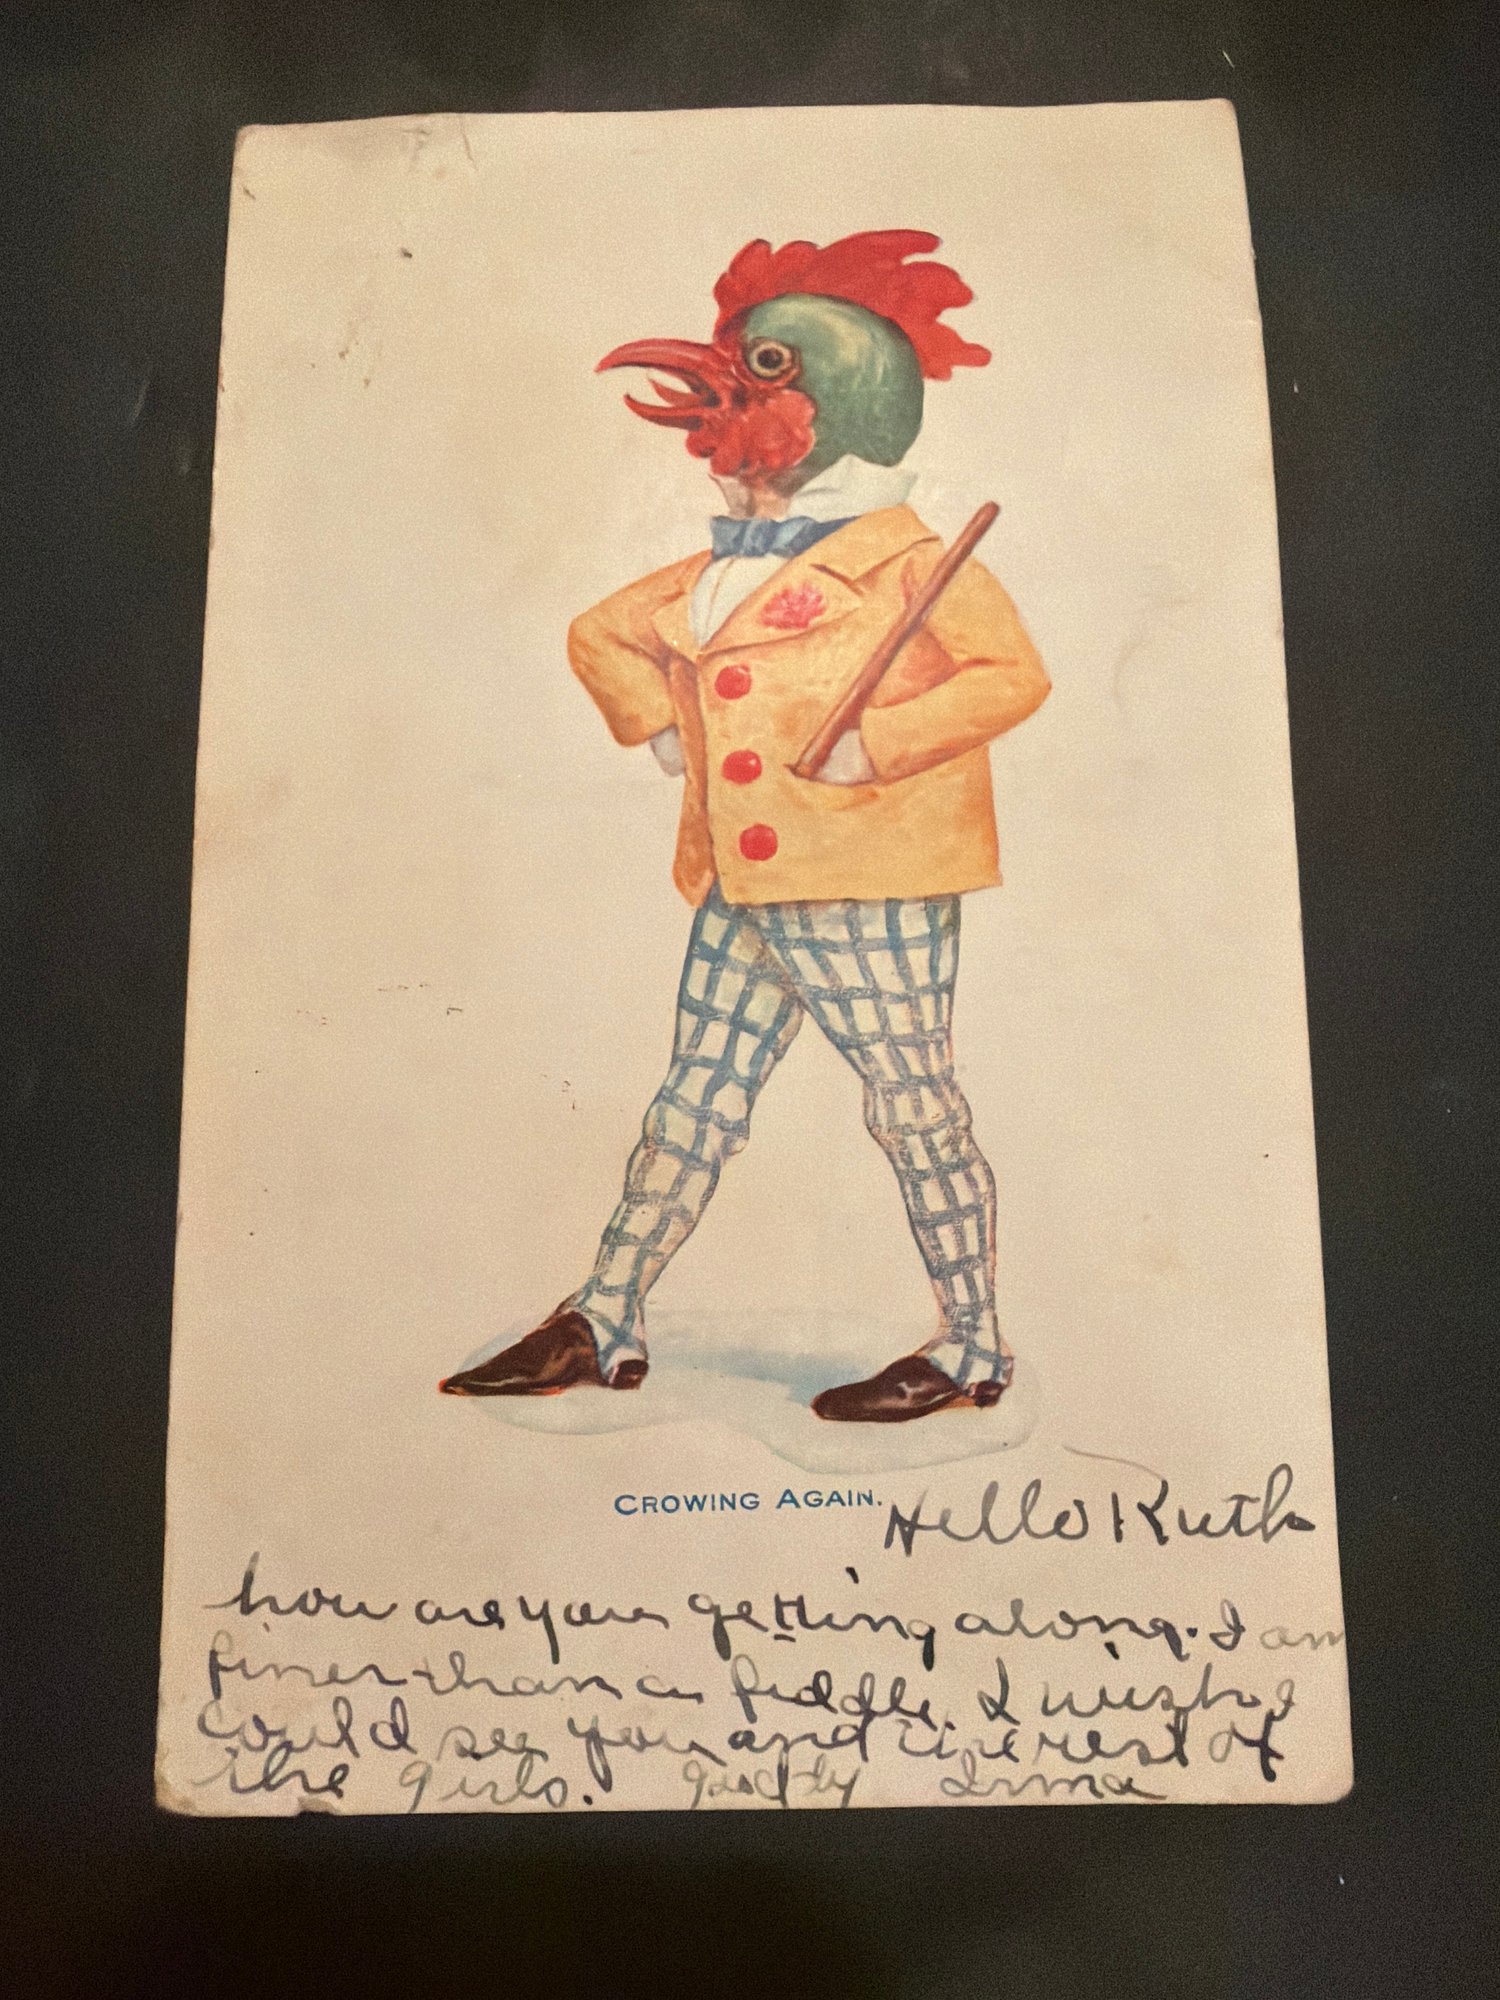 CROWING AGAIN.
Hello Ruth
how are you getting along. I am
finer than a fiddle. I wish I
could see you and the rest of
the girls. Irma